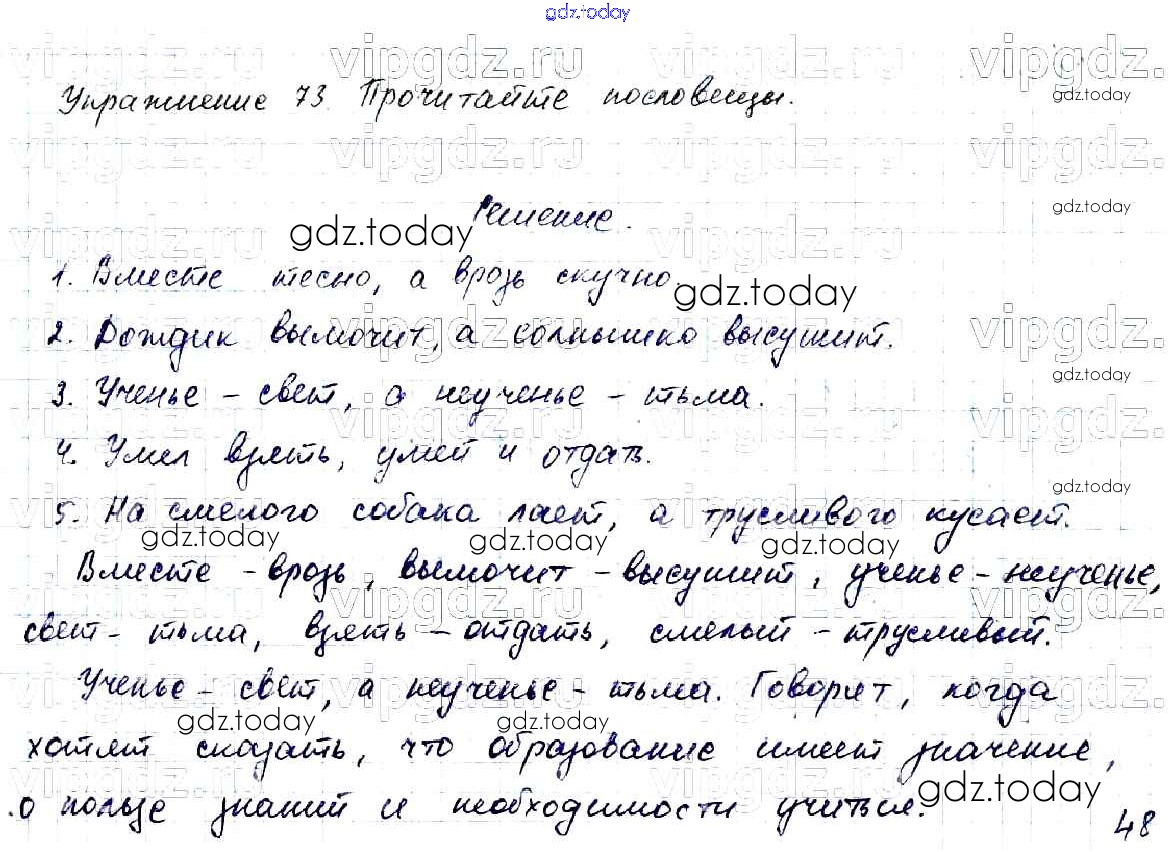 gdz.today
Упражнение 73 Прочитайте пословицы.
Решение.
1. Вместе тесно, а врозь скучно.
2. Дождик вымочит, а солнышко высушит.
3. Ученье - свет, а неученье - тьма.
4. Умел взять, умей и отдать.
5. На смелого собака лает, а трусливого кусает.
Вместе - врозь, вымочит - высушит, ученье - неученье,
свет - тьма, взять - отдать, смелый - трусливый.
Ученье - свет, а неученье - тьма. Говорят, когда
хотят сказать, что образование имеет значение,
о пользе знаний и необходимости учиться.
48